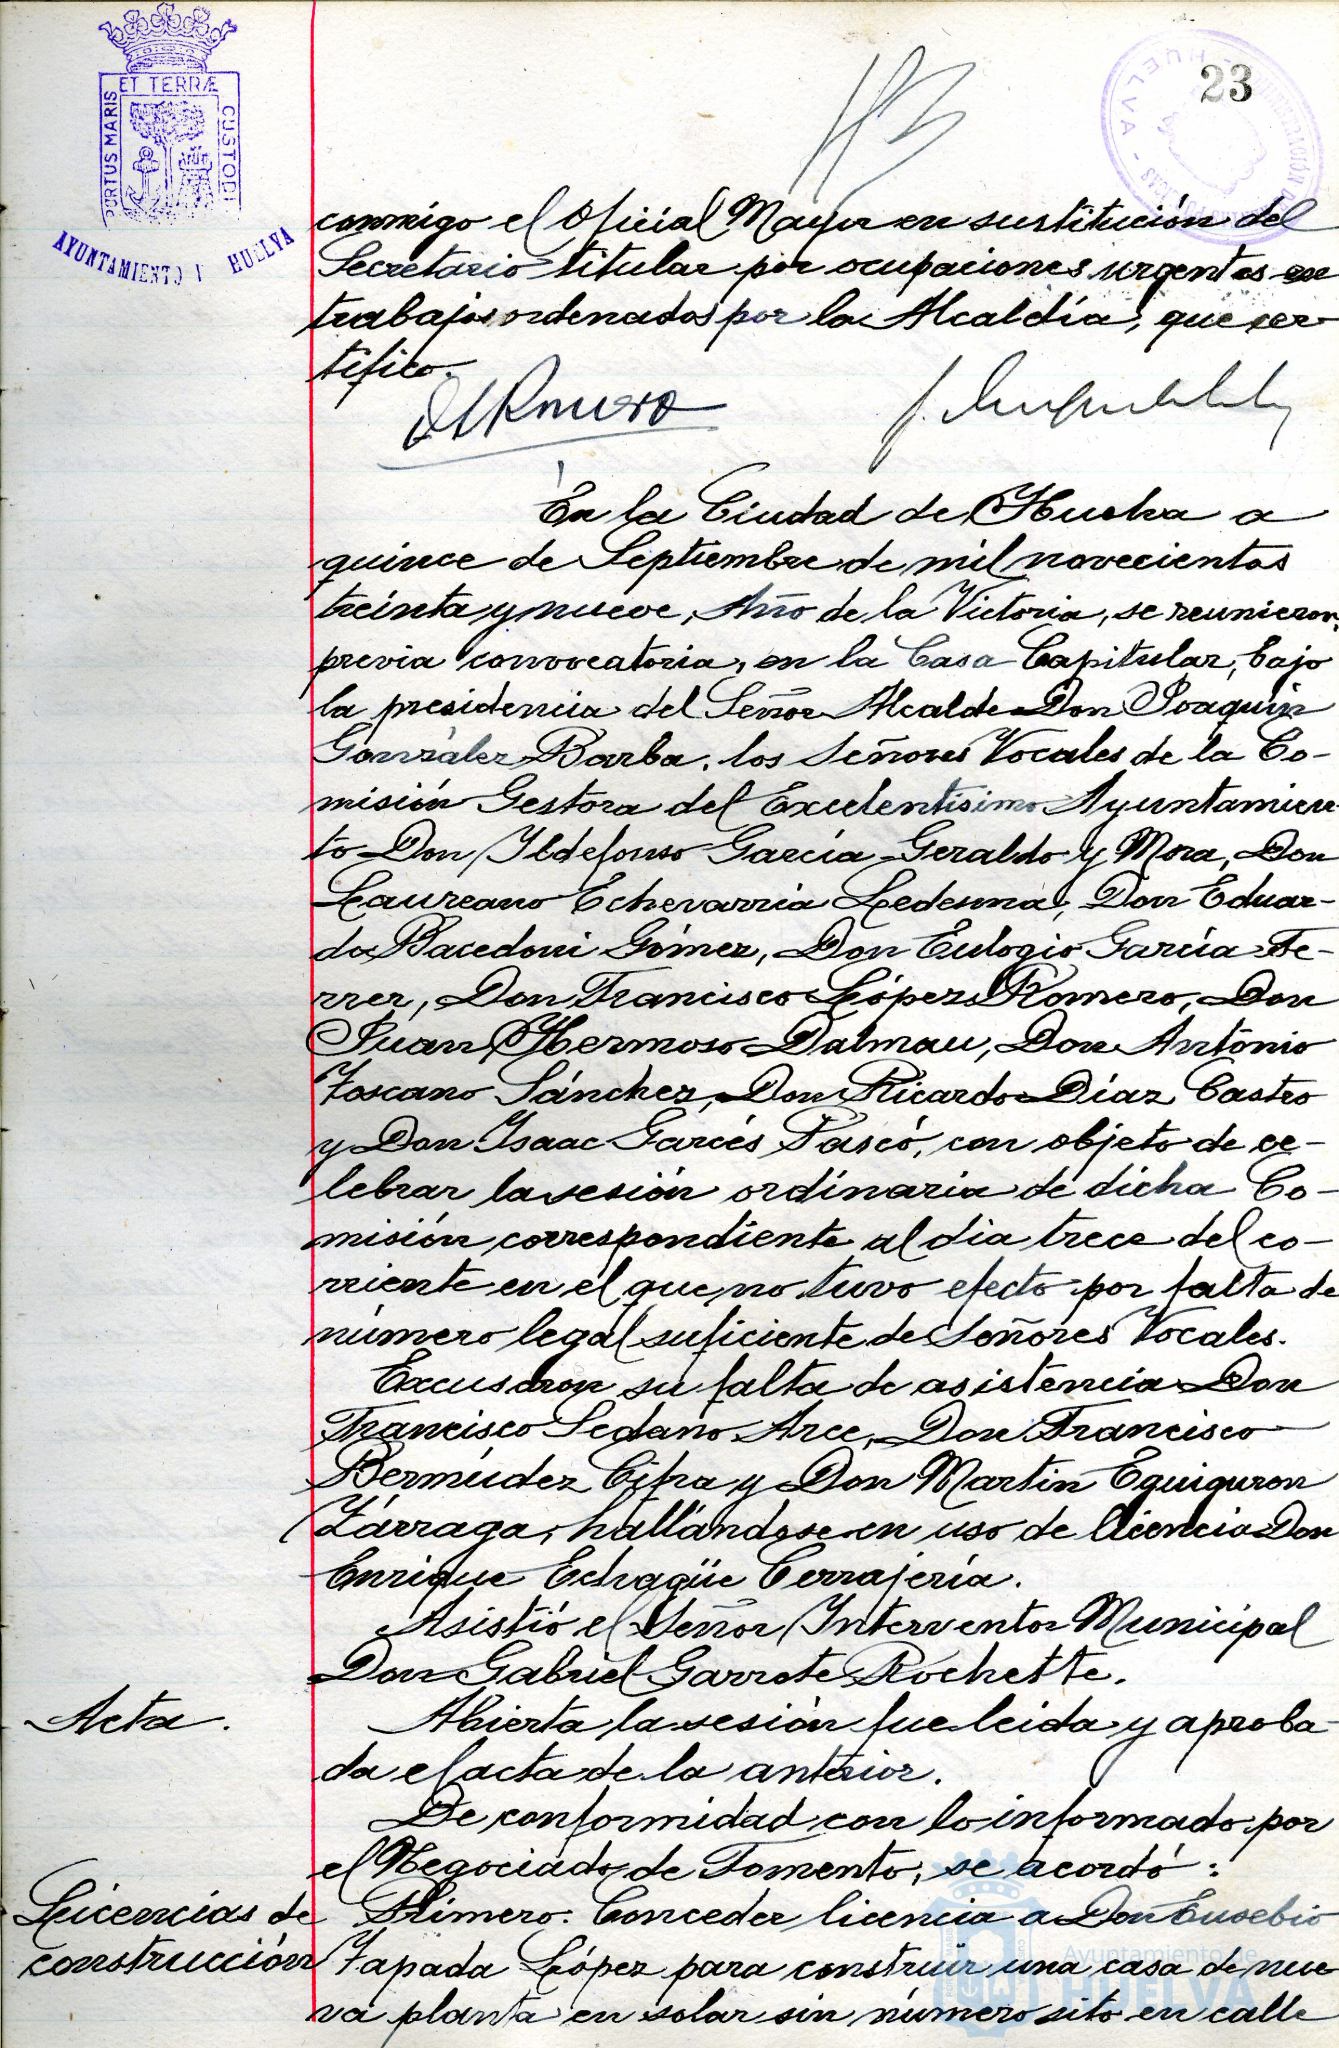 ET TERRÆ
PORTUS MARIS
CUSTODI
AYUNTAMIENTO HUELVA
HUELVA
23
conmigo el Oficial Mayor en sustitución del
Secretario titular por ocupaciones urgentes en
trabajos ordenados por la Alcaldía, que cer-
tifico.
Romero
En la Ciudad de Huelva a
quince de Septiembre de mil novecientos
treinta y nueve, Año de la Victoria, se reunieron,
previa convocatoria, en la Casa Capitular, bajo
la presidencia del Señor Alcalde Don Joaquín
González Barba, los Señores Vocales de la Co-
misión Gestora del Excelentísimo Ayuntamien-
to Don Ildefonso García Geraldo y Mora, Don
Laureano Echevarría Ledesma, Don Eduar-
do Bacedoni Gómez, Don Eulogio García Fe-
rrer, Don Francisco López Romero, Don
Juan Hermoso Dalmau, Don Antonio
Toscano Sánchez, Don Ricardo Díaz Castro
y Don Isaac Garcés Pascó, con objeto de ce-
lebrar la sesión ordinaria de dicha Co-
misión correspondiente al dia trece del co-
rriente en el que no tuvo efecto por falta de
número legal suficiente de Señores Vocales.
Excusaron su falta de asistencia Don
Francisco Sedano Arce, Don Francisco
Bermúdez Cifra y Don Martin Eguiguron
Zárraga, hallándose en uso de licencia Don
Enrique Echagüe Cerrajería.
Asistió el Señor Interventor Municipal
Don Gabriel Garrote Rochette.
Acta.
Abierta la sesión fue leida y aproba-
da el acta de la anterior.
De conformidad con lo informado por
el Negociado de Fomento, se acordó:
Licencias de
construcción
Primero. Conceder licencia a Don Eusebio
Zapada López para construir una casa de nue-
va planta en solar sin número sito en calle
Ayuntamiento de
HUELVA